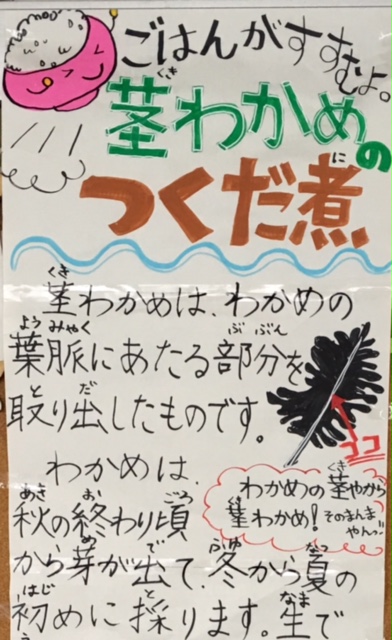 ごはんがすすむよ。
茎わかめの
つくだ煮
茎わかめは、わかめの
葉脈にあたる部分を
取り出したものです。
ココ
わかめは、
わかめの茎やから
茎わかめ!そのまんまやんッ
秋の終わり頃
から芽が出て、冬から夏の
初めに採ります。生で